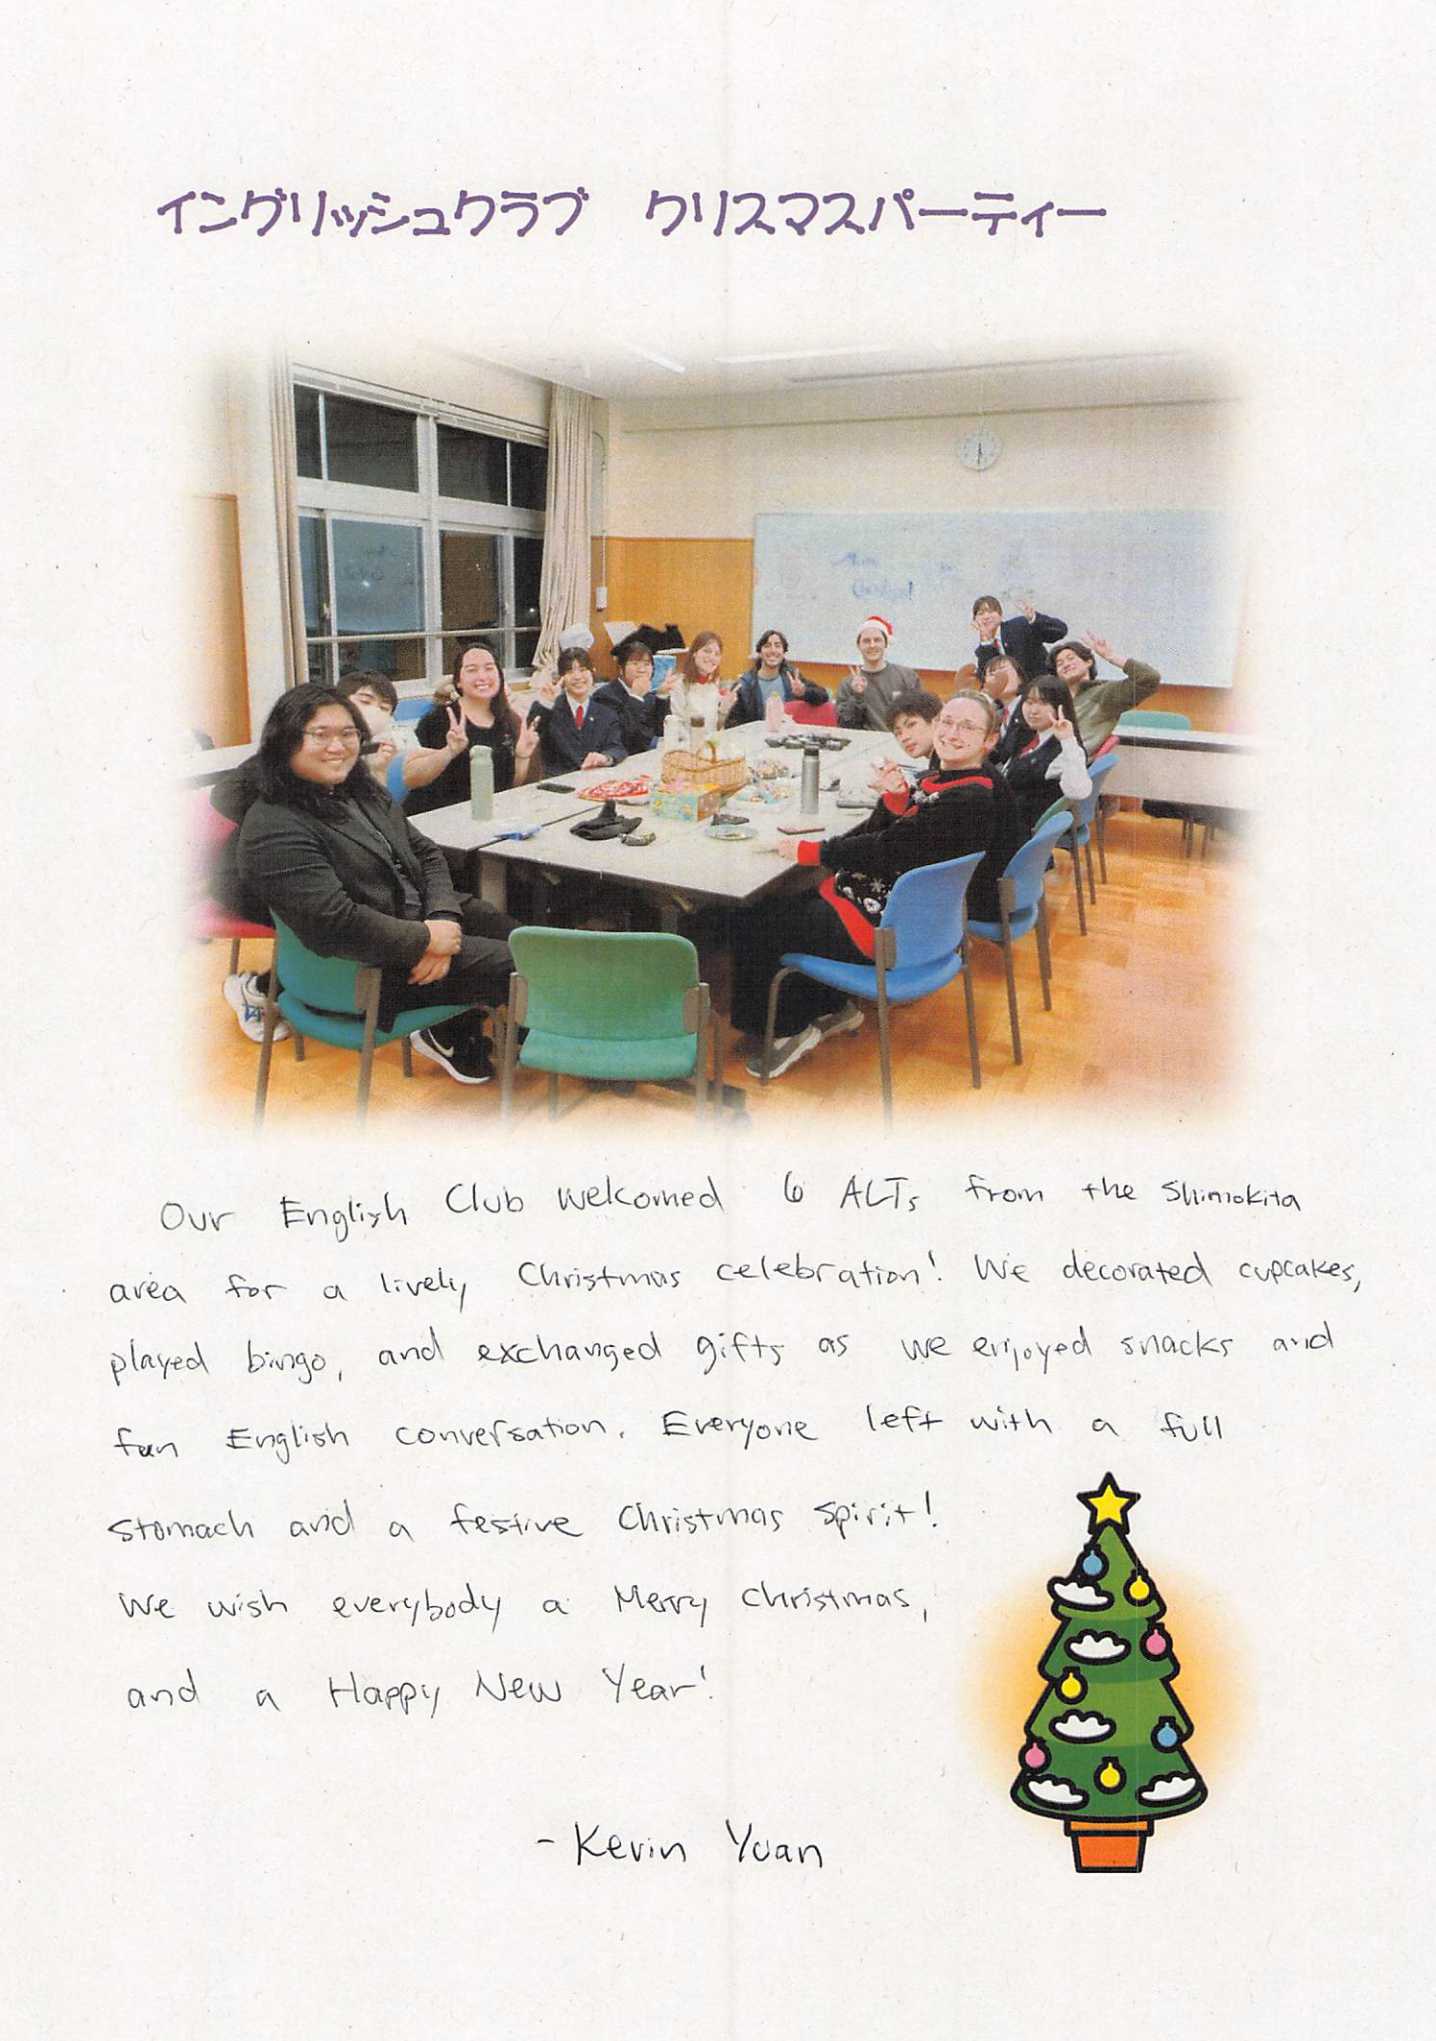 イングリッシュクラブ　クリスマスパーティー
Our English Club welcomed 6 ALTs from the Shimokita
area for a lively Christmas celebration! We decorated cupcakes,
played bingo, and exchanged gifts as we enjoyed snacks and
fun English conversation. Everyone left with a full
stomach and a festive Christmas spirit!
We wish everybody a Merry Christmas,
and a Happy New Year!
- Kevin Yuan